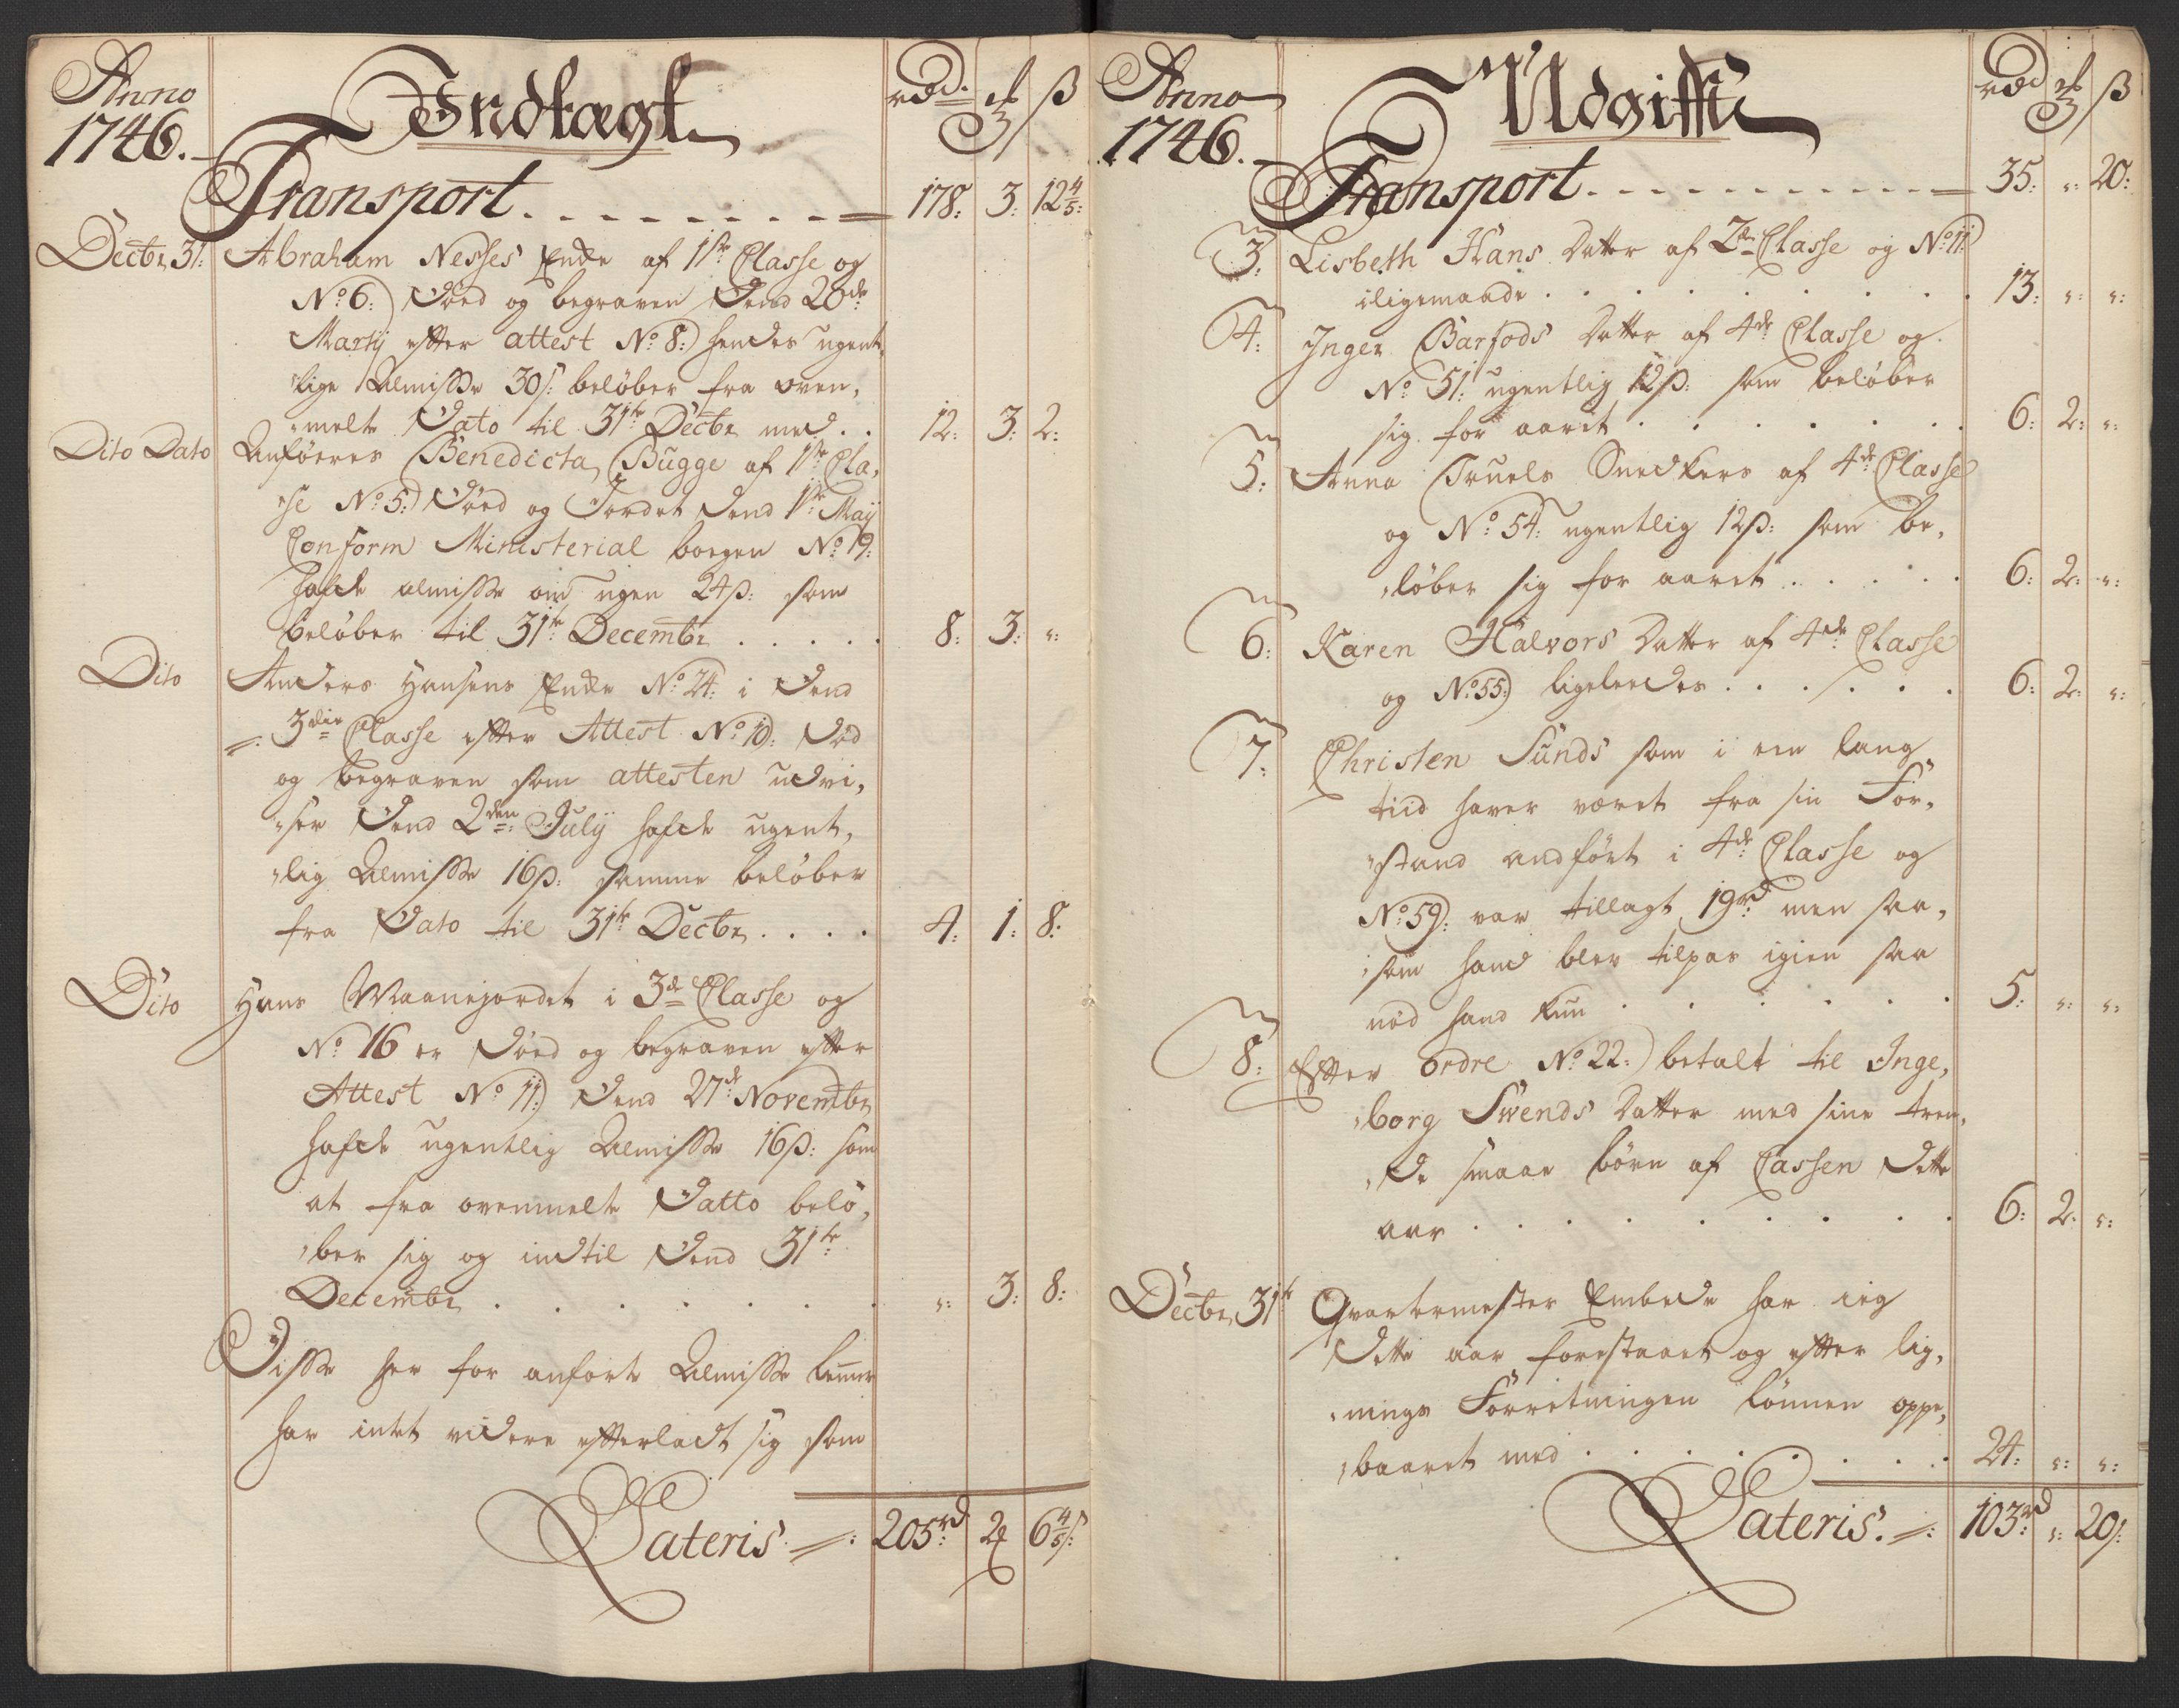 Anno
1746.
Indtægt
rdr. ℳ ß
Transport . . . . . . . . 178: 3: 12 4/5:
Decbr 31: Abraham Nesses Enke af 1ste Classe og
No 6: Døed og begraven Dend 20de
Martij efter attest No 8: hendes ugent,
,,lige Almisse 30ß: beløber fra oven,
,,melte Dato til 31te Decbr med . . 12: 3: 2:
Dito Dato Anføeres Benedicta Bugge af 1ste Cla,
,,se No 5: Døed og Jordet Dend 1ste Maij
Conform Ministerial bogen No 19:
hafde almisse om ugen 24ß: som
beløber til 31te Decembr . . . . . 8: 3: ":
Dito Anders Hansens Enke No 24: i Dend
3die Classe efter Attest No 10: Død
og begraven som attesten udvi,
,,ser Dend 2den July hafde ugent,
,,lig Almisse 16ß: samme beløber
fra Dato til 31te Decbr . . . . 4: 1: 8:
Dito Hans Maanejordet i 3de Classe og
No 16 er Døed og begraven efter
Attest No 11: Dend 27de Novembr
hafde ugentlig Almisse 16ß: som
at fra ovenmelte Datto belø,
,,ber sig og indtil Dend 31te
Decembr . . . . . . . ": 3: 8:
Disse her for anførte Almisse lemmer
har intet videre efterladt sig som
Lateris 205rd 2ℳ 6 4/5ß:
Anno
1746.
Udgifft
rdr ℳ ß
Transport . . . . . . . . . . 35: ": 20:
3: Lisbeth Hans Datter af 2den Classe og No 11:
iligemaade . . . . . . . . 13: ": ":
4: Inger Barfods Datter af 4de Classe og
No 51: ugentlig 12ß: som beløber
sig for aaret . . . . . . 6: 2: ":
5: Anna Truels Snedkers af 4de Classe
og No 54: ugentlig 12ß: som be,
,,løber sig for aaret . . . . . 6: 2: ":
6: Karen Halvors Datter af 4de Classe
og No 55: ligeledes . . . . . . 6: 2: ":
7: Christen Sunds som i een lang
tiid haver været fra sin For,
,,stand andført i 4de Classe og
No 59: var tillagt 19rd men saa,
,,som hand blev tilpas igien saa
nød hand kun . . . . . . 5: ": ":
8: Efter ordre No 22: betalt til Inge,
,,borg Svends Datter med sine tren,
,,de smaae børn af Cassen dette
aar . . . . . . . . 6: 2: ":
Decbr 31te Qvartermester Embede har ieg
dette aar forestaaet og efter lig,
,,nings Forretningen lønnen oppe,
,,baaret med . . . . . . . 24: ": ":
Lateris. 103rd ": 20ß: